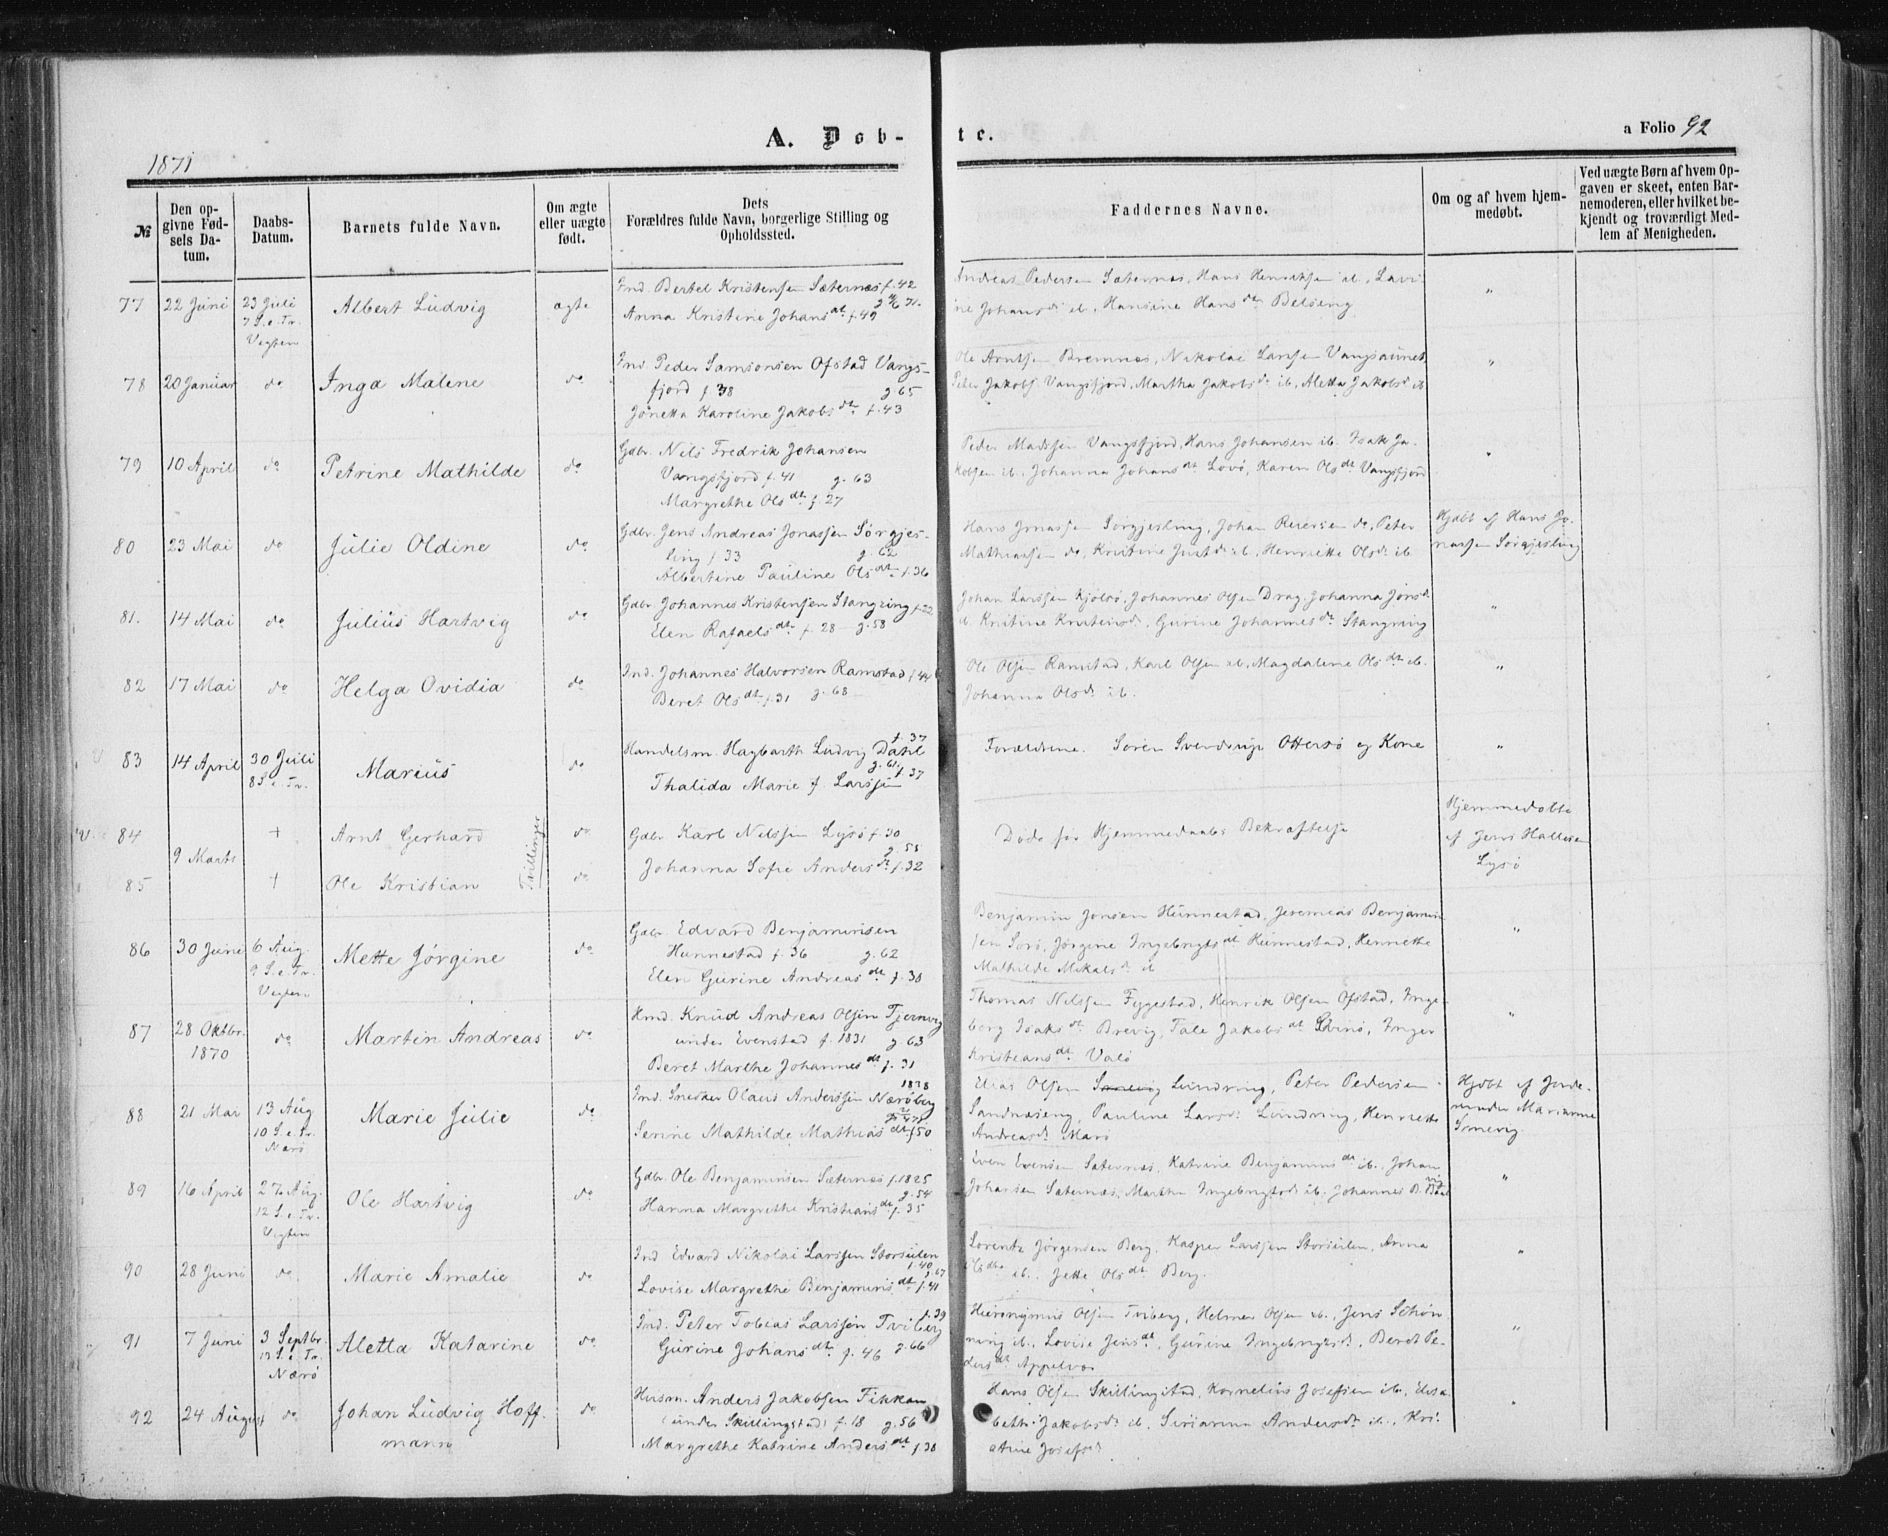 1871
A. Dob-
te.
a Folio 92
№
Den opgivne Fødsels Datum.
Daabs-Datum.
Barnets fulde Navn.
Om ægte eller uægte født.
Dets Forældres fulde Navn, borgerlige Stilling og Opholdssted.
Faddernes Navne.
Om og af hvem hjemmedøbt.
Ved uægte Børn af hvem Opgaven er skeet, enten Barnemoderen, eller hvilket bekjendt og troværdigt Medlem af Menigheden.
77 22 Juni 23 Juli Albert Ludvig ægte Ind. Bertel Kristensen Sæternæs f. 42
7 S. e. Tr. Vegten Anna Kristine Johansdt. f. 49
Andreas Pedersen Sæternæs, Hans Henriksen ib., Lavi-
ne Johansdt ib., Hansine Hansdtr Belseng "
78 20 Januar do Inga Malene do Ind. Peder Samsonsen Ofstad Vangs-
fjord f. 38 g. 65
Jønetta Karoline Jakobsdt. f. 43
Ole Arntsen Bremnes, Nikolai Larssen Vangsaunet
Peter Jakobs. Vangsfjord, Martha Jakobsdt ib, Aletta Jakobsd ib "
79 10 April do Petrine Mathilde do Gdbr. Nils Fredrik Johansen
Vangsfjord f. 41 g. 63
Margrethe Olsdt. f. 27
Peder Madssen Vangsfjord, Hans Johansen ib. Isak Ja-
kobsen ib., Johanna Johansdt Lovø, Karen Olsdt Vangsfjord "
80 23 Mai do Julie Oldine do Gdbr. Jens Andreas Jonassen Sørgjes-
ling f. 33 g. 62
Albertine Pauline Olsdt. f. 36
Hans Jonassen Sørgjesling, Johan Reiersen do, Peter
Mathiassen do, Kristine Justdt ib., Henriette Olsdt ib
Hjdbt af Hans Jo-
nassen Sørgjesling
81. 14 Mai do Julius Hartvig do Gdbr. Johannes Kristensen Stangring f. 22
Elen Rafaelsdt. f. 28 g. 58
Johan Larssen Kjølsø, Johannes Olsen Drag, Johanna Jonsd
ib. Kristine Kristensd, Gurine Johannesdt Stangring "
82 17 Mai do Helga Ovidia do Ind. Johannes Halvorsen Ramstad f. 44
Beret Olsdt. f. 31 g. 68
Ole Olsen Ramstad, Karl Olsen ib, Magdalene Olsdt ib.
Johanna Olsdt ib. "
83 14 April 30 Juli Marius do Handelsm. Hagbarth Ludvig Dahl f. 37
8 S. e. Tr. g. 61
Thalida Marie f. Larssen f. 37
Forældrene. Søren Svendrup Ottersø og Kone "
84 + Arnt Gerhard do Gdbr. Karl Nilssen Lysø f. 30
9 Marts Tvillinger g. 55
85 + Ole Kristian do Johanna Sofie Andersdt f. 32
Døde før Hjemmedaabs Bekræftelse
Hjemmedøbte
af Jens Hallesen
Lysø
86 30 Juni 6 Aug. Mette Jørgine do Gdbr. Edvard Benjaminsen
9 S. e. Tr. Vegten Hunnestad f. 36 g. 62
Elen Gurine Andreasdt f. 38
Benjamin Jonsen Hunnestad, Jeremias Benjamin-
sen Sørø, Jørgine Ingebrigtsdt Hunnestad, Henriette
Mathilde Mikalsdt ib "
87 28 Oktbr. 1870 do Martin Andreas do Hmd. Knud Andreas Olsen Tjernvig
under Evenstad f. 1831 g. 63
Beret Marthe Johannesdt f. 31
Thomas Nilssen Fygestad, Henrik Olsen Ofstad, Inge-
berg Isaksdt Brevig, Tale Jakobsdt Svinø, Inger
Kristiansdt. Valø "
88 21 Mai 13 Aug Marie Julie do Ind. Snedker Olaus Anderssen Nærøberg 1828
10 S. e. Tr. Nærø Serine Mathilde Mathiasdt f. 50
Elias Olsen Lundring, Peter Pedersen
Sandnaseng, Pauline Larsdt Lundring, Henriette
Andreasdt Marø
Hjdbt af Jorde-
moder Marianne
Smevig.
89 16 April 27 Aug. Ole Hartvig do Gdbr. Ole Benjaminsen Sæternæs f. 1825
12 S. e. Tr. Vegten g. 54
Hanna Margrethe Kristiansdt f. 35
Even Evensen Sæternæs, Katrine Benjaminsdt ib., Johan
Johansen Sæternæs, Martha Ingebrigtsdt ib. Johannes "
90 28 Juni do Marie Amalie do Ind Edvard Nikolai Larssen Storsulen
f. 40 g. 67
Lovise Margrethe Benjaminsdt f. 41
Lorents Jørgensen Berg, Kasper Larssen Storsulen, Anna
Olsdtr ib., Jette Olsdt Berg. "
91 7 Juni 3 Septbr. Aletta Katarine do Ind. Peter Tobias Larssen Tviberg f. 39
13 S. e. Tr. Nærø Gurine Johansdt. f. 46 g. 66
Hieronymus Olsen Tviberg, Helmer Olsen ib. Jens Schøn-
ning ib., Lovise Jensdt, Gurine Ingebrigtsdt, Beret Pe-
dersdt Appelvær "
92 24 August do Johan Ludvig Hoff-
mann do Husm. Anders Jakobsen Fikkan
(under Skillingstad) f. 18 g. 56
Margrethe Katrine Andersdt f. 38
Hans Olsen Skillingstad, Kornelius Josefsen ib., Elisa-
beth Jakobsdt ib., Sirianna Andersdt ib., Kri-
stine Josefsdt "